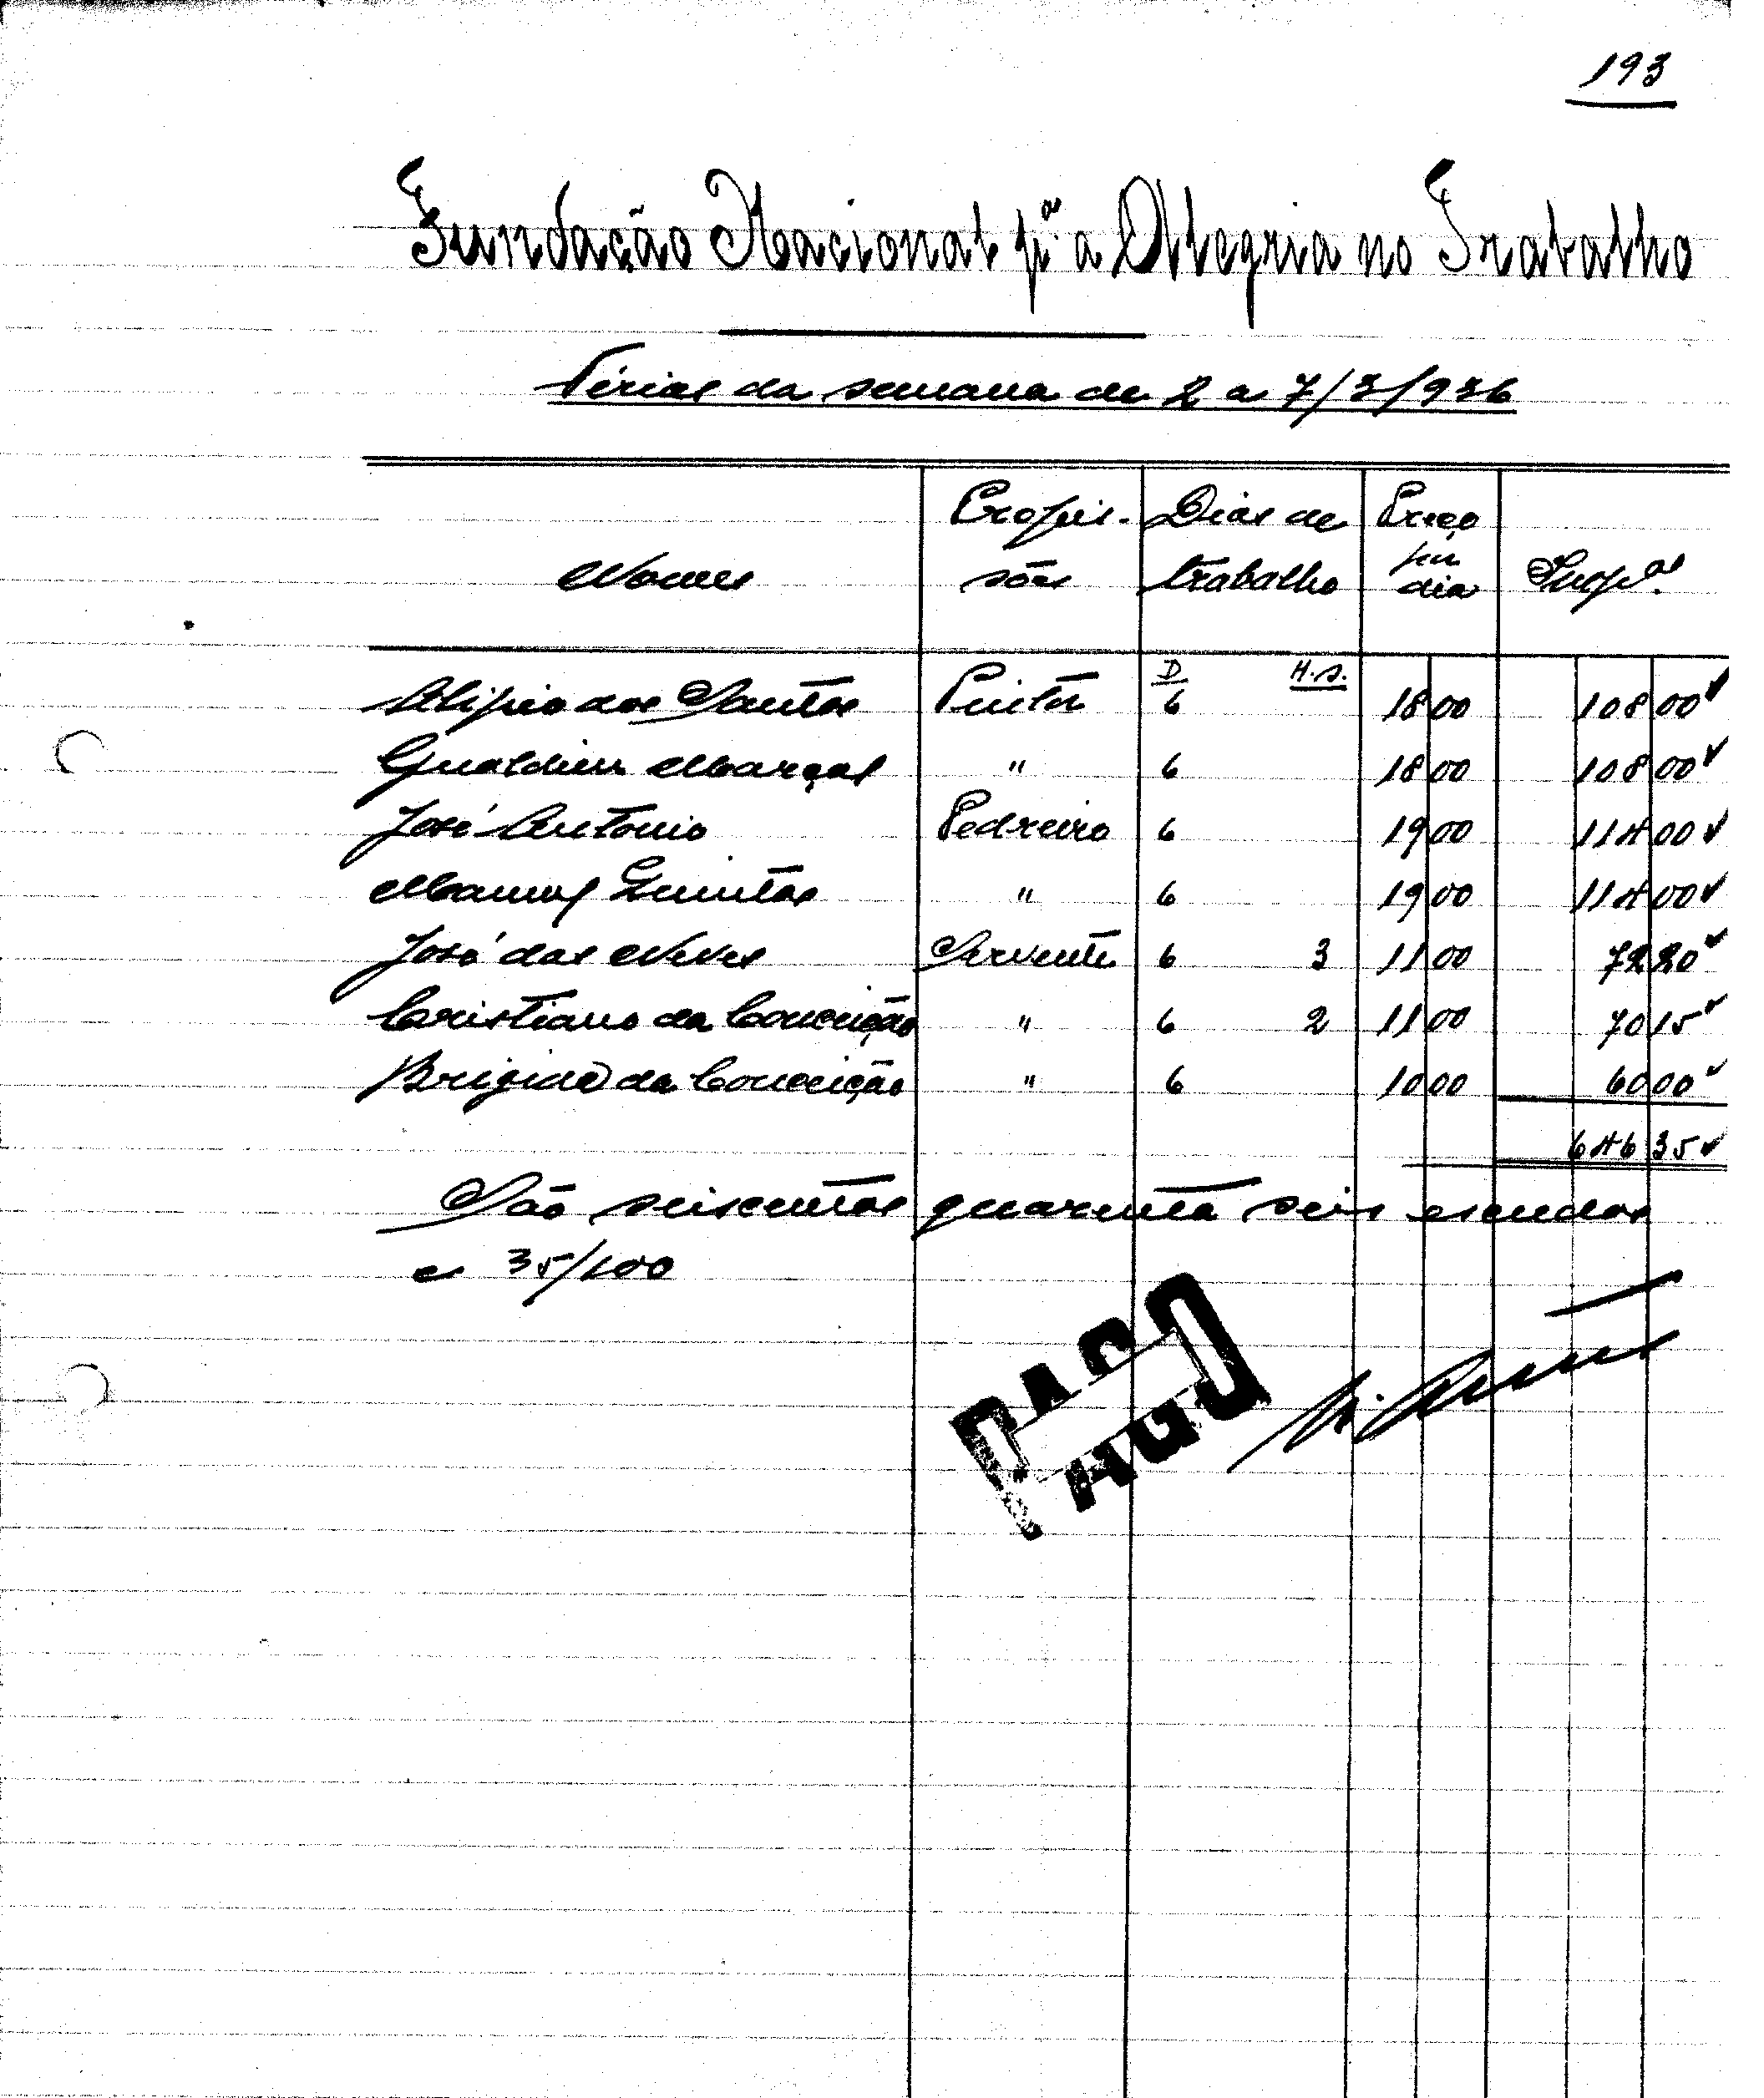 193
Fundação Nacional pª a Alegria no Trabalho
Férias da semana de 2 a 7/3/936
Nomes Profis- sões Dias de trabalho Preço por dia Impᵃˢ
D H.s.
Alipio dos Santos Pintor 6 18 00 108 00
Gualdim Marçal " 6 18 00 108 00
José Antonio Pedreiro 6 19 00 114 00
Manuel Quintas " 6 19 00 114 00
José das Neves Servente 6 3 11 00 72 20
Cristiano da Conceição " 6 2 11 00 70 15
Brigida da Conceição " 6 10 00 60 00
646 35
São seiscentos quarenta seis escudos
e 35/100
PAGO